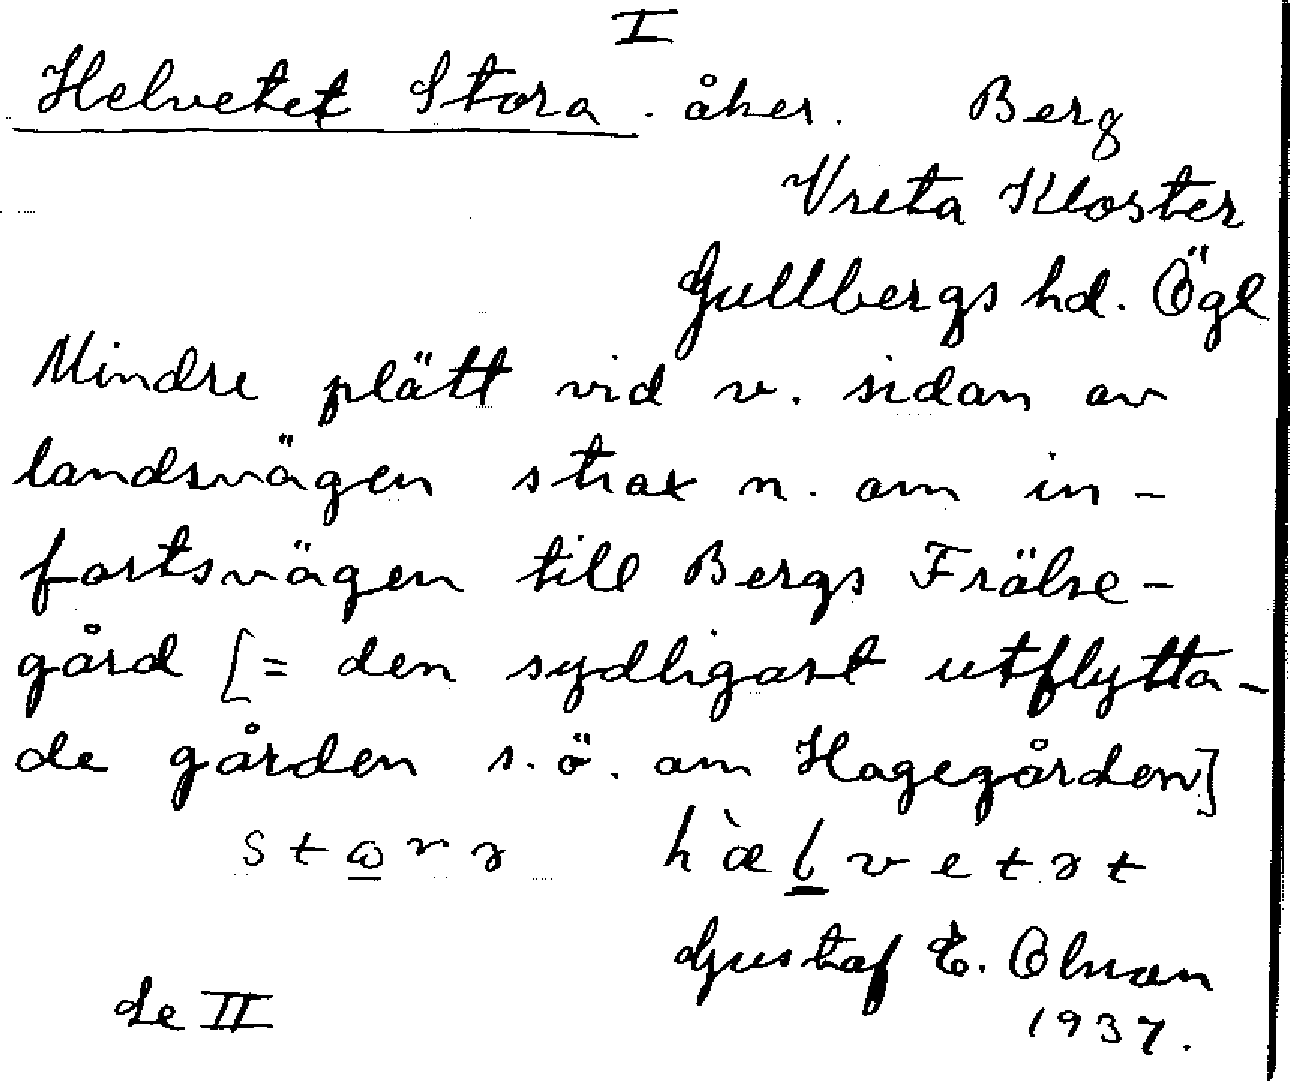 I
Helvetet Stora . åker. Berg
Vreta Kloster
Gullbergs hd. Ögl
Mindre plätt vid v. sidan av
landsvägen strax n. om in-
fartsvägen till Bergs Frälse-
gård [= den sydligast utflytta-
de gården s.ö. om Hagegården]
Gustaf E. Olson
1937.
se II